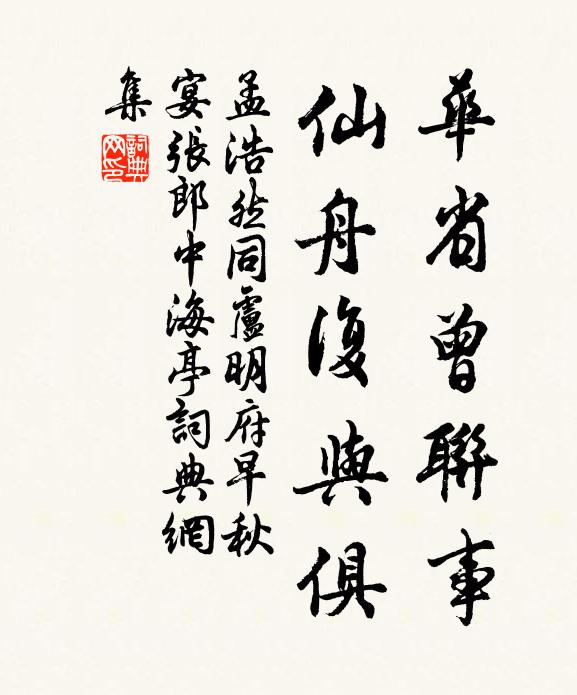 華省曾聯事
仙舟復與俱
孟浩然同盧明府早秋
宴張郎中海亭詞典網
集
詞典
网印